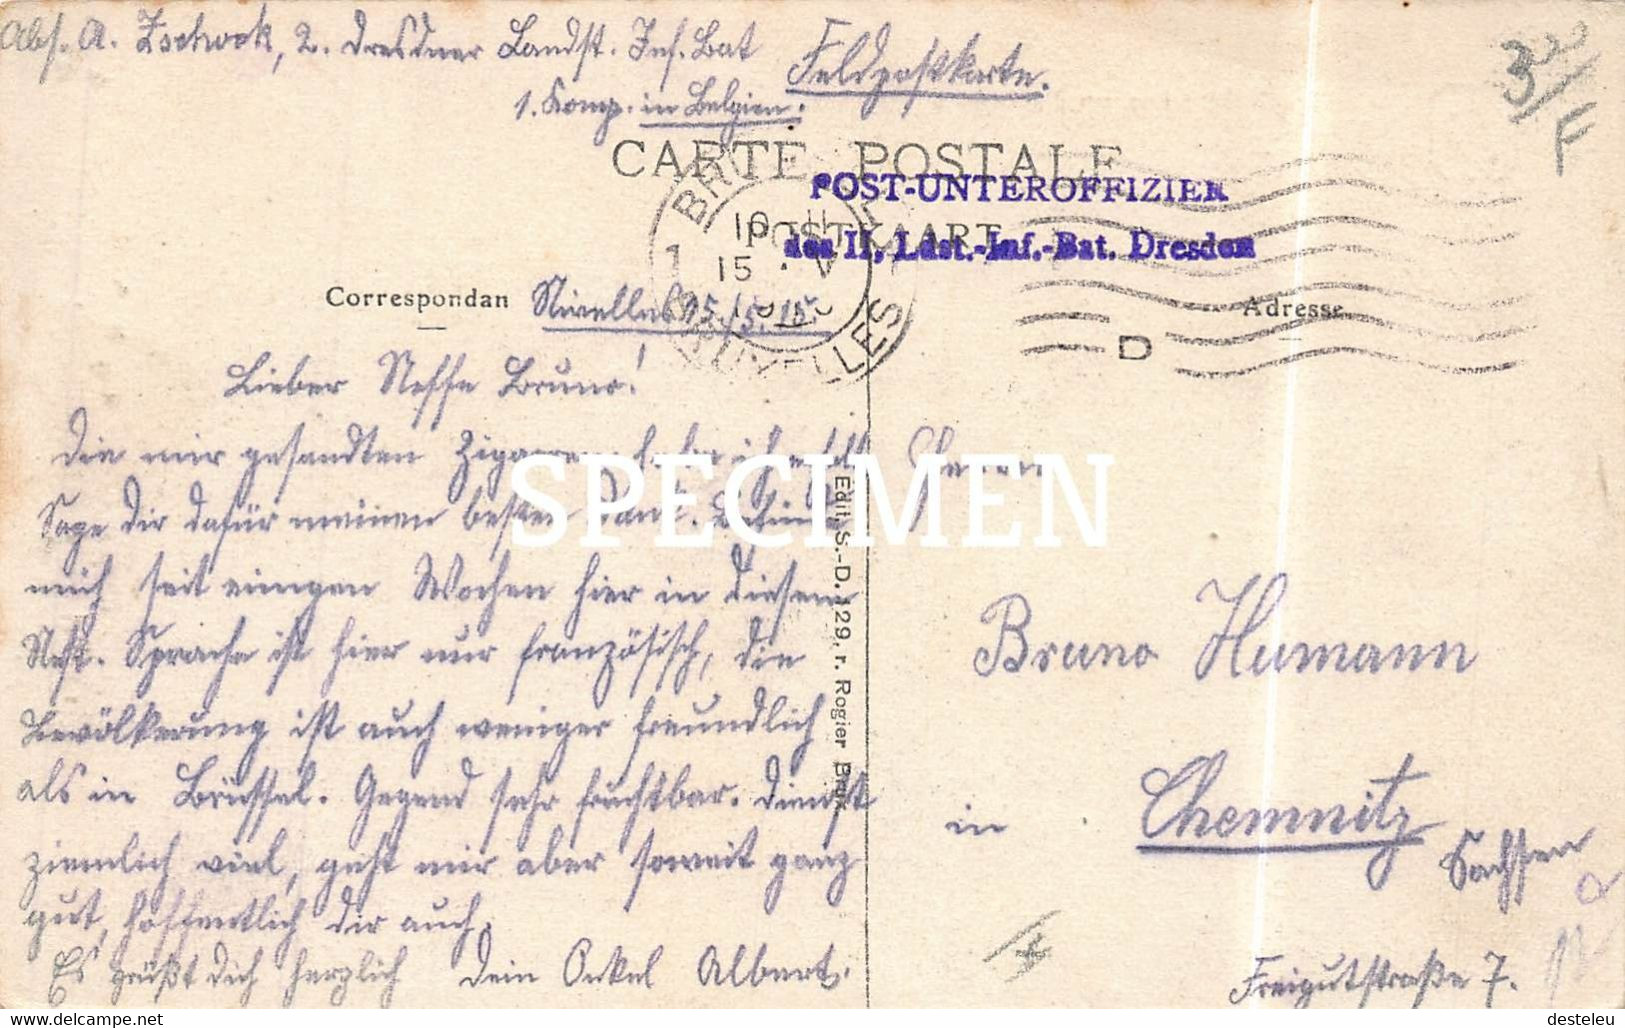 Abs. A. Zschock, 2. Dresdner Landst. Inf. Bat
1. Komp. in Belgien.
Feldpostkarte.
CARTE POSTALE
POSTKAART
POST-UNTEROFFIZIER
des II, Ldst.-Inf.-Bat. Dresden
1 BRUXELLES
15 V
D
Correspondan
Nivelles 15./5. 15.
Adresse
Lieber Neffe Bruno!
Die mir gesandten Zigarren habe ich erhalt
Sage dir dafür meinen besten Dank. Befinde
mich seit einigen Wochen hier in diesem
Nest. Sprache ist hier nur französisch, die
Bevölkerung ist auch weniger freundlich
als in Brüssel. Gegend sehr fruchtbar. Dienst
ziemlich viel, geht mir aber soweit ganz
gut, hoffentlich dir auch.
Es grüßt dich herzlich dein Onkel Albert.
Edit. S.-D. 129, r. Rogier Brux
Herrn
Bruno Humann
in Chemnitz
Sachsen
Freigutstraße 7.
SPECIMEN
delcampe.net
desteleu